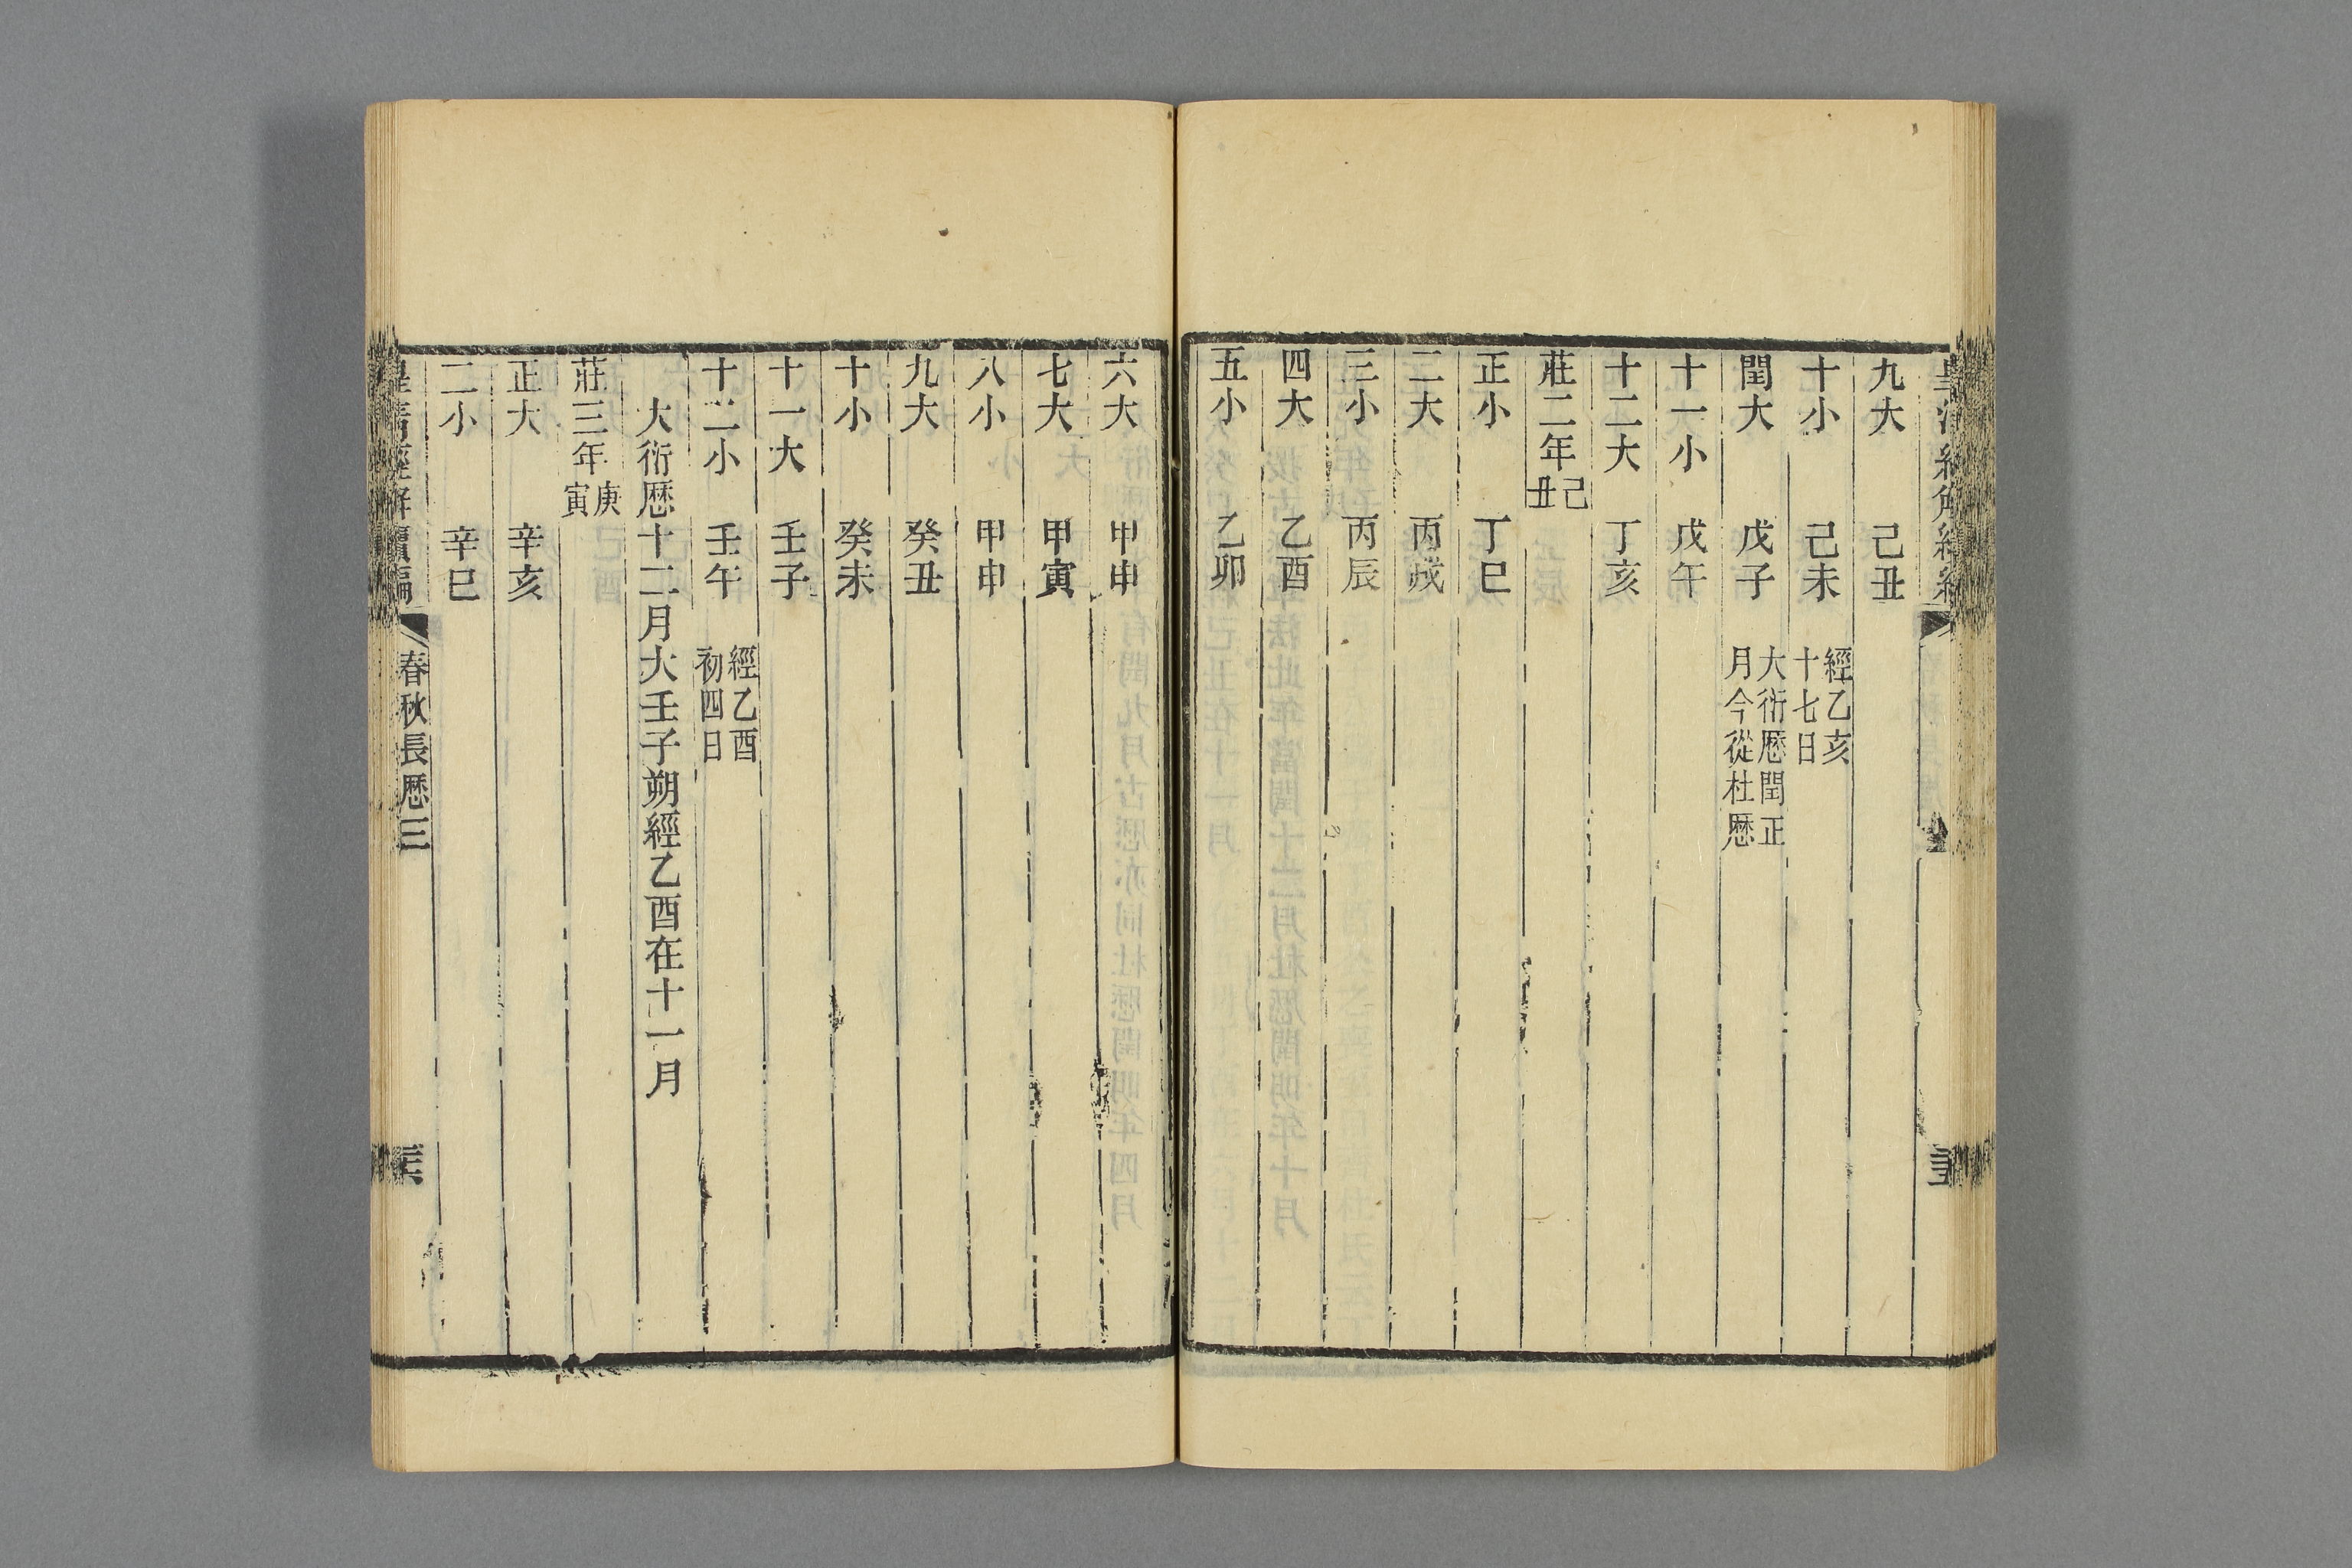 九大 己丑
十小 己未 經乙亥十七日
閏大 戊子 大衍厯閏正月今從杜厯
十一小 戊午
十二大 丁亥
莊二年 己丑
正小 丁巳
二大 丙戌
三小 丙辰
四大 乙酉
五小 乙卯
六大 甲申
七大 甲寅
八小 甲申
九大 癸丑
十小 癸未
十一大 壬子
十二小 壬午 經乙酉初四日
大衍厯十二月大壬子朔經乙酉在十一月
莊三年 庚寅
正大 辛亥
二小 辛巳
皇清經解續編 春秋長厯三